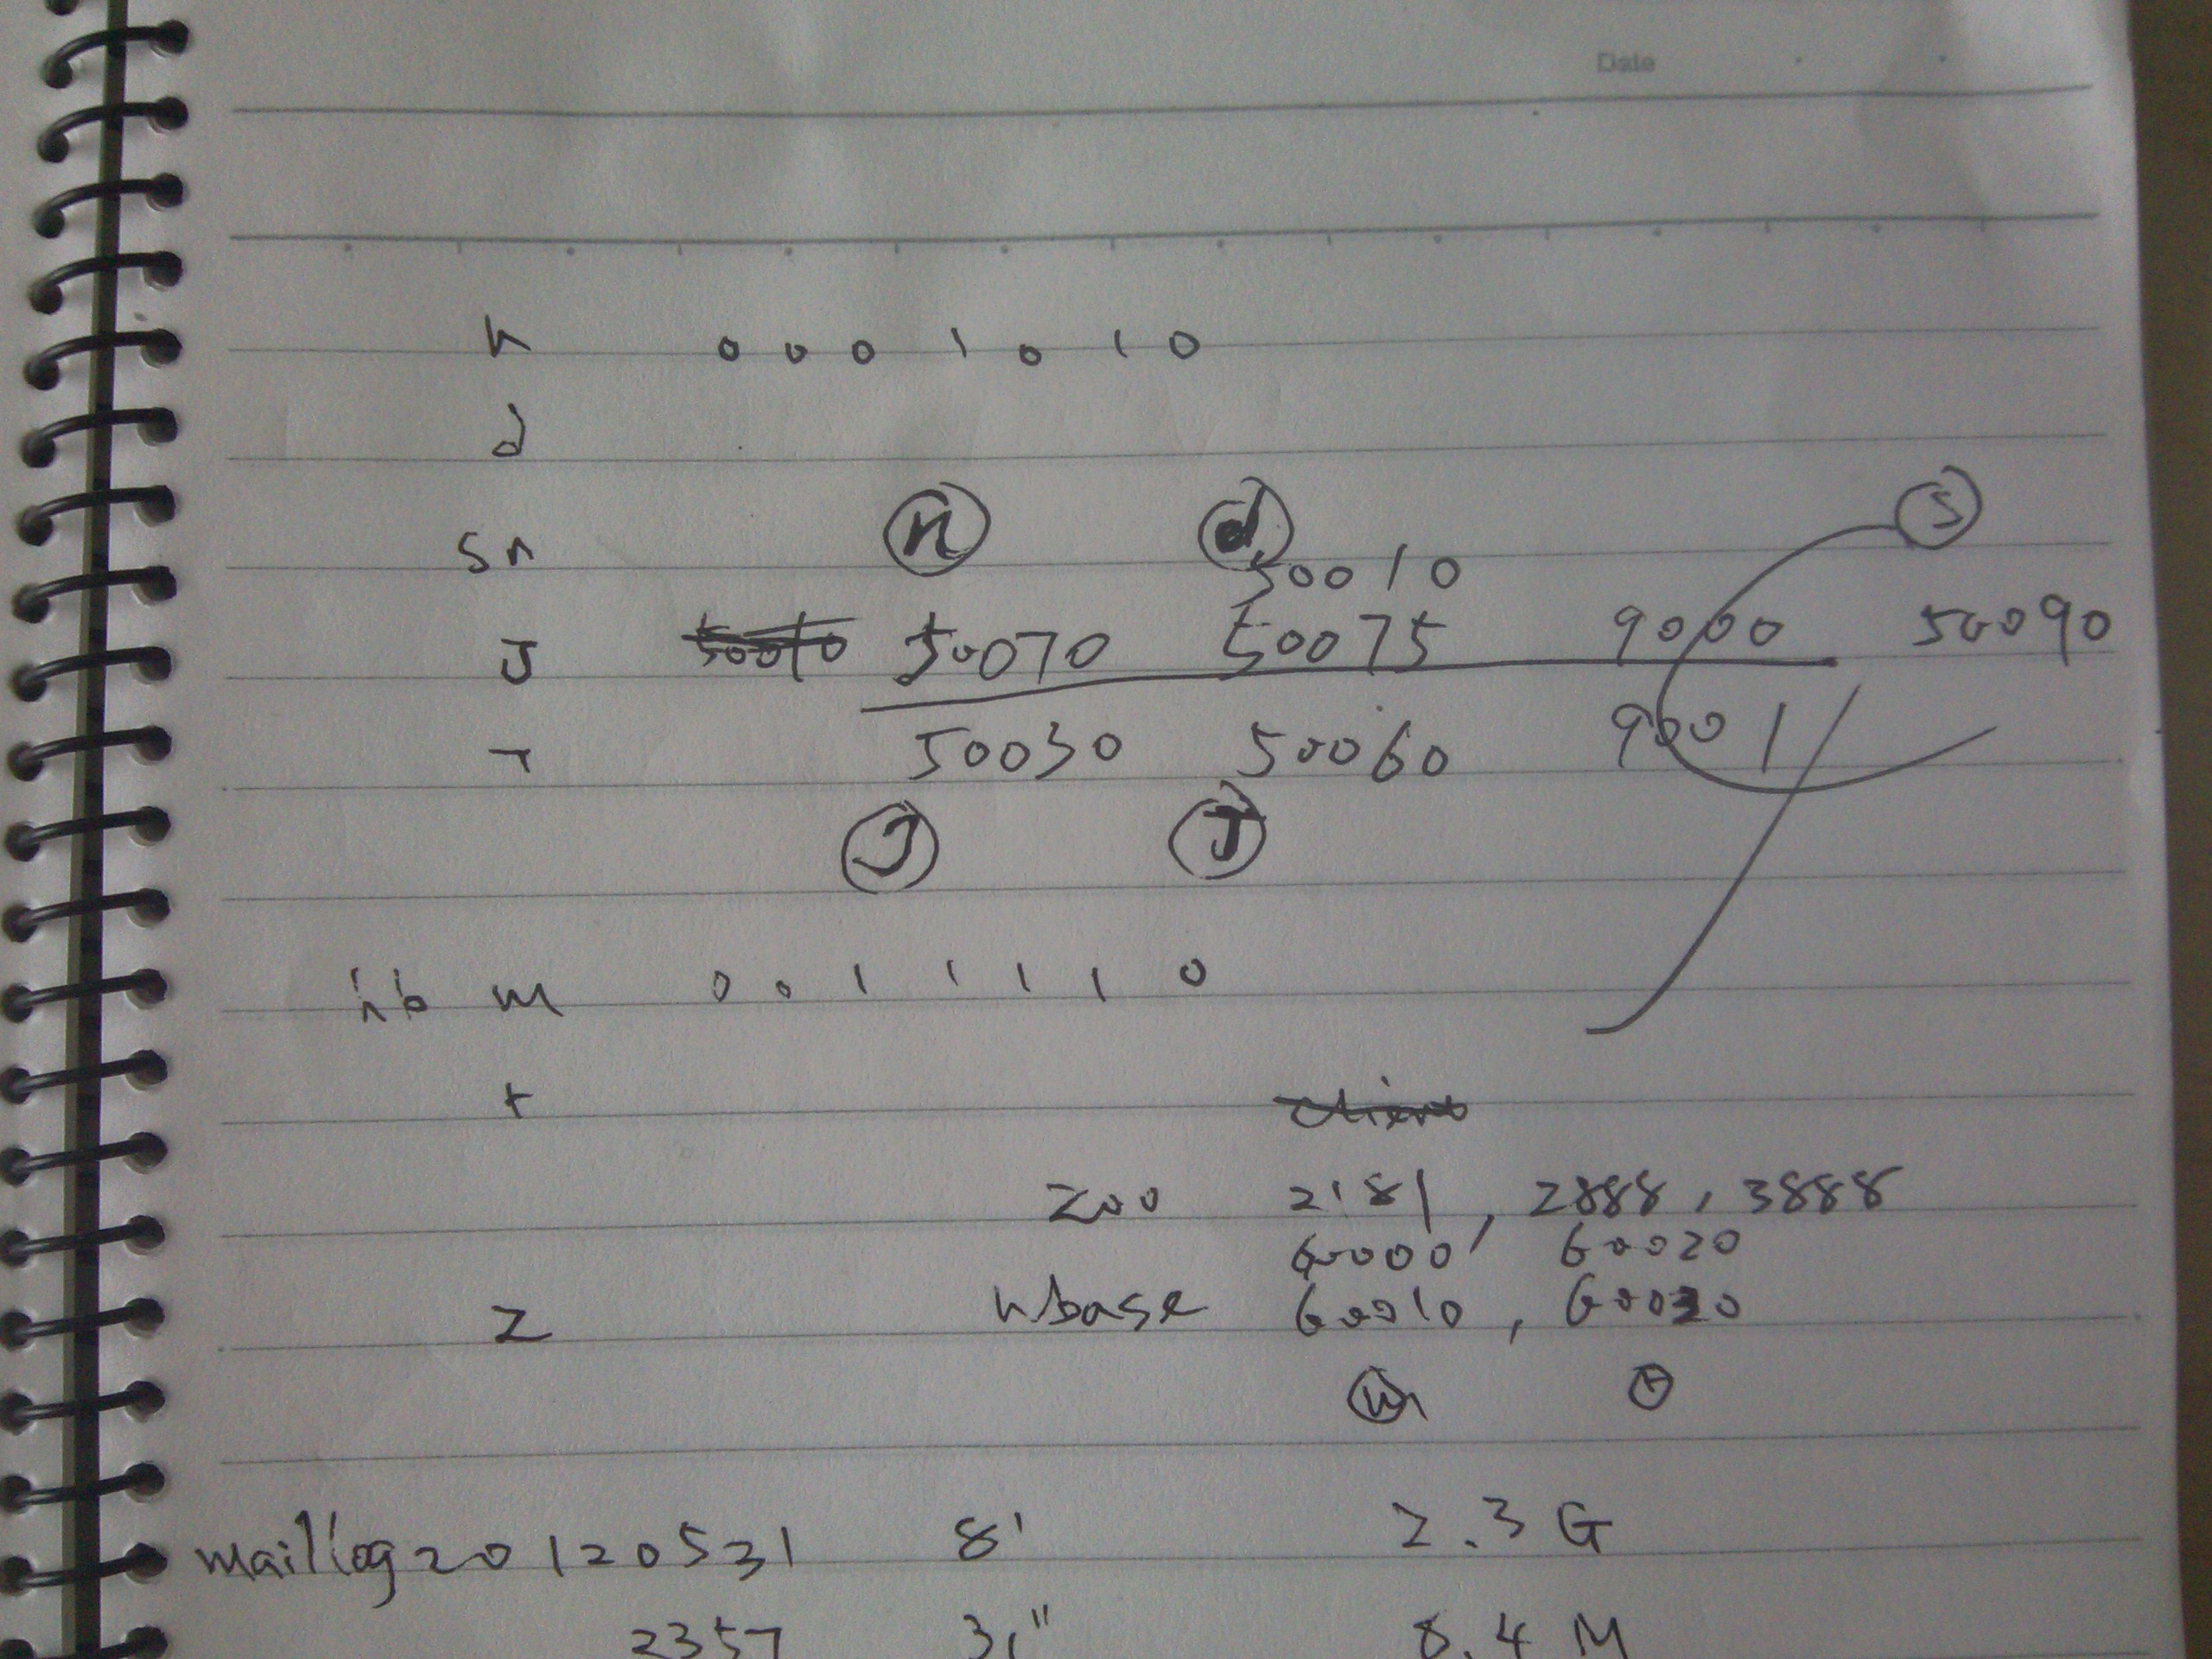 Date
n 0 0 0 1 0 1 0
d
sn n d s
50010
J 50070 50075 9000 50090
T 50030 50060 9001
J T
hb m 0 0 1 1 1 1 0
r
zoo 2181, 2888, 3888
60000, 60020
z hbase 60010, 60030
m r
maillog20120531 8' 2.3G
2357 31" 8.4M